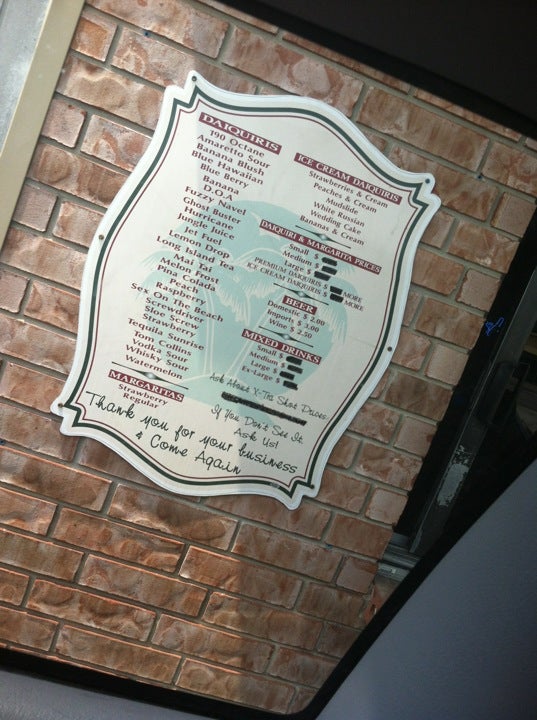 DAIQUIRIS
190 Octane
Amaretto Sour
Banana Blush
Blue Hawaiian
Blue Berry
Banana
D.O.A
Fuzzy Navel
Ghost Buster
Hurricane
Jungle Juice
Jet Fuel
Lemon Drop
Long Island Tea
Mai Tai
Melon Frost
Pina Colada
Peach
Raspberry
Sex On The Beach
Screwdriver
Sloe Screw
Strawberry
Tequila Sunrise
Tom Collins
Vodka Sour
Whisky Sour
Watermelon
MARGARITAS
Strawberry
Regular
ICE CREAM DAIQUIRIS
Strawberries & Cream
Peaches & Cream
Mudslide
White Russian
Wedding Cake
Bananas & Cream
DAIQUIRI & MARGARITA PRICES
Small $
Medium $
Large $
PREMIUM DAIQUIRIS $ MORE
ICE CREAM DAIQUIRIS $ MORE
BEER
Domestic $ 2.00
Imports $ 3.00
Wine $ 2.50
MIXED DRINKS
Small $
Medium $
Large $
Ex-Large $
Ask About X-Tra Shot Prices
If You Don't See It
Ask Us!
Thank you for your business
& Come Again